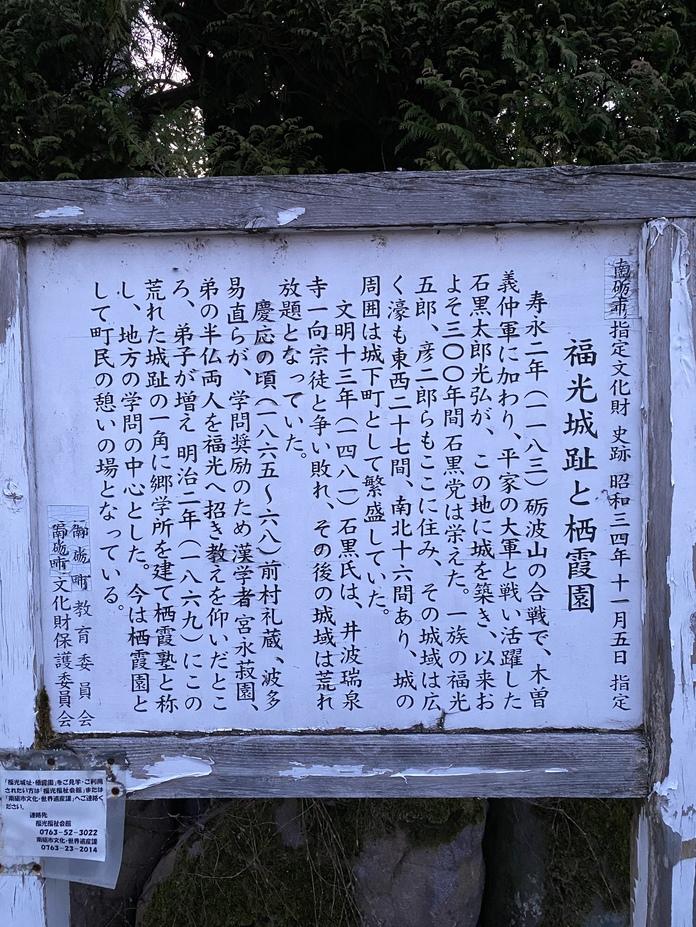 南砺市指定文化財 史跡 昭和三四年十一月五日 指定
福光城趾と栖霞園
寿永二年(一一八三)砺波山の合戦で、木曽
義仲軍に加わり、平家の大軍と戦い活躍した
石黒太郎光弘が、この地に城を築き、以来お
よそ三〇〇年間石黒党は栄えた。一族の福光
五郎、彦二郎らもここに住み、その城域は広
く濠も東西二十七間、南北十六間あり、城の
周囲は城下町として繁盛していた。
文明十三年(一四八一)石黒氏は、井波瑞泉
寺一向宗徒と争い敗れ、その後の城域は荒れ
放題となっていた。
慶応の頃(一八六五〜六八)前村礼蔵、波多
易直らが、学問奨励のため漢学者宮永菽園、
弟の半仏両人を福光へ招き教えを仰いだとこ
ろ、弟子が増え 明治二年(一八六九)にこの
荒れた城趾の一角に郷学所を建て栖霞塾と称
し、地方の学問の中心とした。今は栖霞園と
して町民の憩いの場となっている。
南砺市教育委員会
南砺市文化財保護委員会
「福光城址・栖霞園」をご見学・ご利用
されたい方は「福光福祉会館」または
「南砺市文化・世界遺産課」へご連絡く
ださい。
連絡先
福光福祉会館
0763-52-3022
南砺市文化・世界遺産課
0763-23-2014